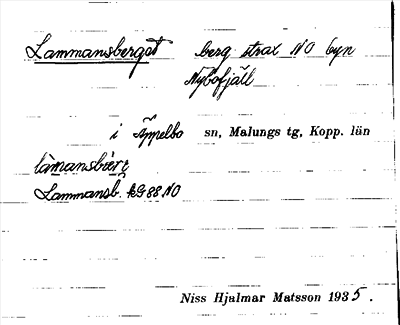 Lammansberget berg strax NO byn
Nybofjäll
i Äppelbo sn, Malungs tg, Kopp. län
Lammansb. kG 88 NO
Niss Hjalmar Matsson 1935.